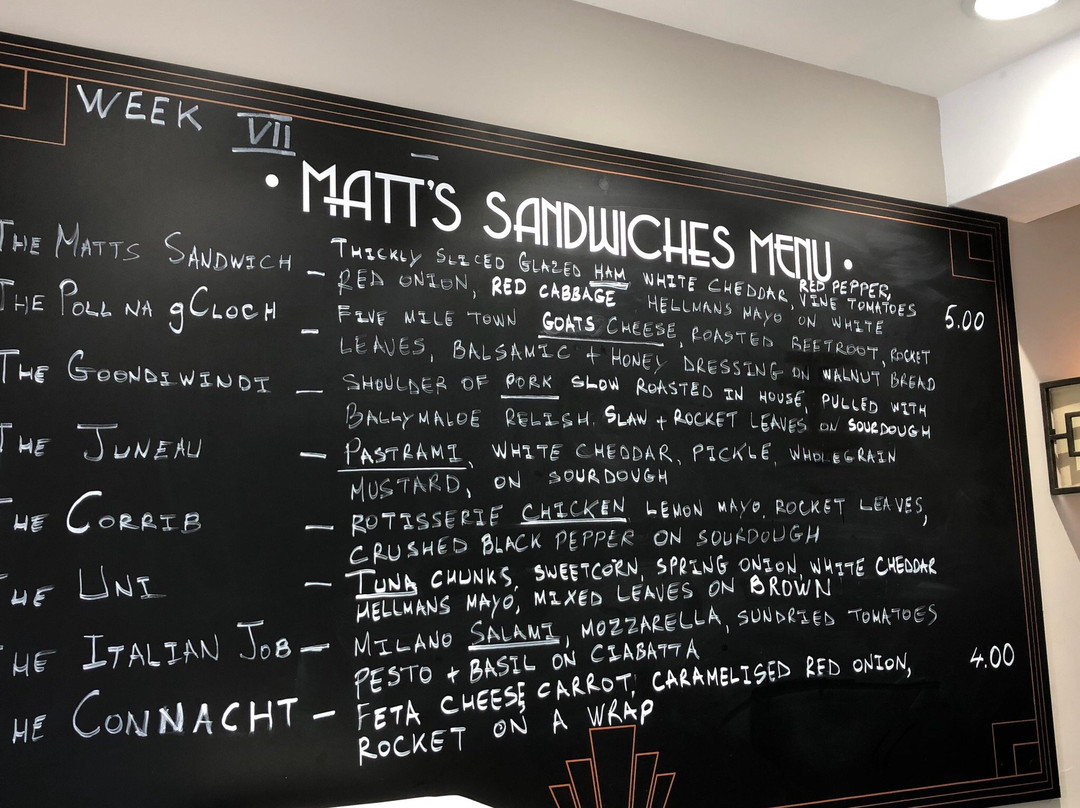 WEEK VII
• MATT'S SANDWICHES MENU •
THE MATTS SANDWICH – THICKLY SLICED GLAZED HAM WHITE CHEDDAR, RED PEPPER,
RED ONION, RED CABBAGE HELLMANS MAYO ON WHITE VINE TOMATOES 5.00
THE POLL NA gCLOCH – FIVE MILE TOWN GOATS CHEESE, ROASTED BEETROOT, ROCKET
LEAVES, BALSAMIC + HONEY DRESSING ON WALNUT BREAD
THE GOONDIWINDI – SHOULDER OF PORK SLOW ROASTED IN HOUSE, PULLED WITH
BALLYMALOE RELISH. SLAW + ROCKET LEAVES ON SOURDOUGH
THE JUNEAU – PASTRAMI, WHITE CHEDDAR, PICKLE, WHOLEGRAIN
MUSTARD, ON SOURDOUGH
THE CORRIB – ROTISSERIE CHICKEN LEMON MAYO, ROCKET LEAVES,
CRUSHED BLACK PEPPER ON SOURDOUGH
HE UNI – TUNA CHUNKS, SWEETCORN, SPRING ONION, WHITE CHEDDAR
HELLMANS MAYO, MIXED LEAVES ON BROWN
HE ITALIAN JOB – MILANO SALAMI, MOZZARELLA, SUNDRIED TOMATOES
PESTO + BASIL ON CIABATTA 4.00
HE CONNACHT – FETA CHEESE CARROT, CARAMELISED RED ONION,
ROCKET ON A WRAP